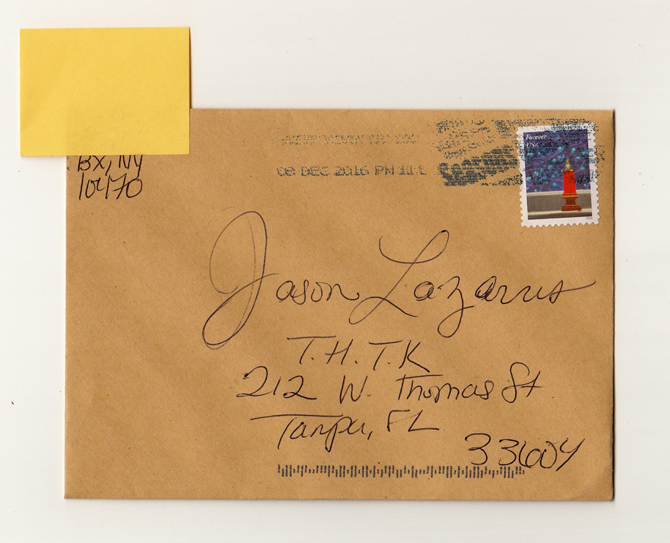 Bx, NY
10470
08 DEC 2016 PM 11 L
Forever
USA
Jason Lazarus
T.H.T.K
212 W. Thomas St
Tampa, FL
33604